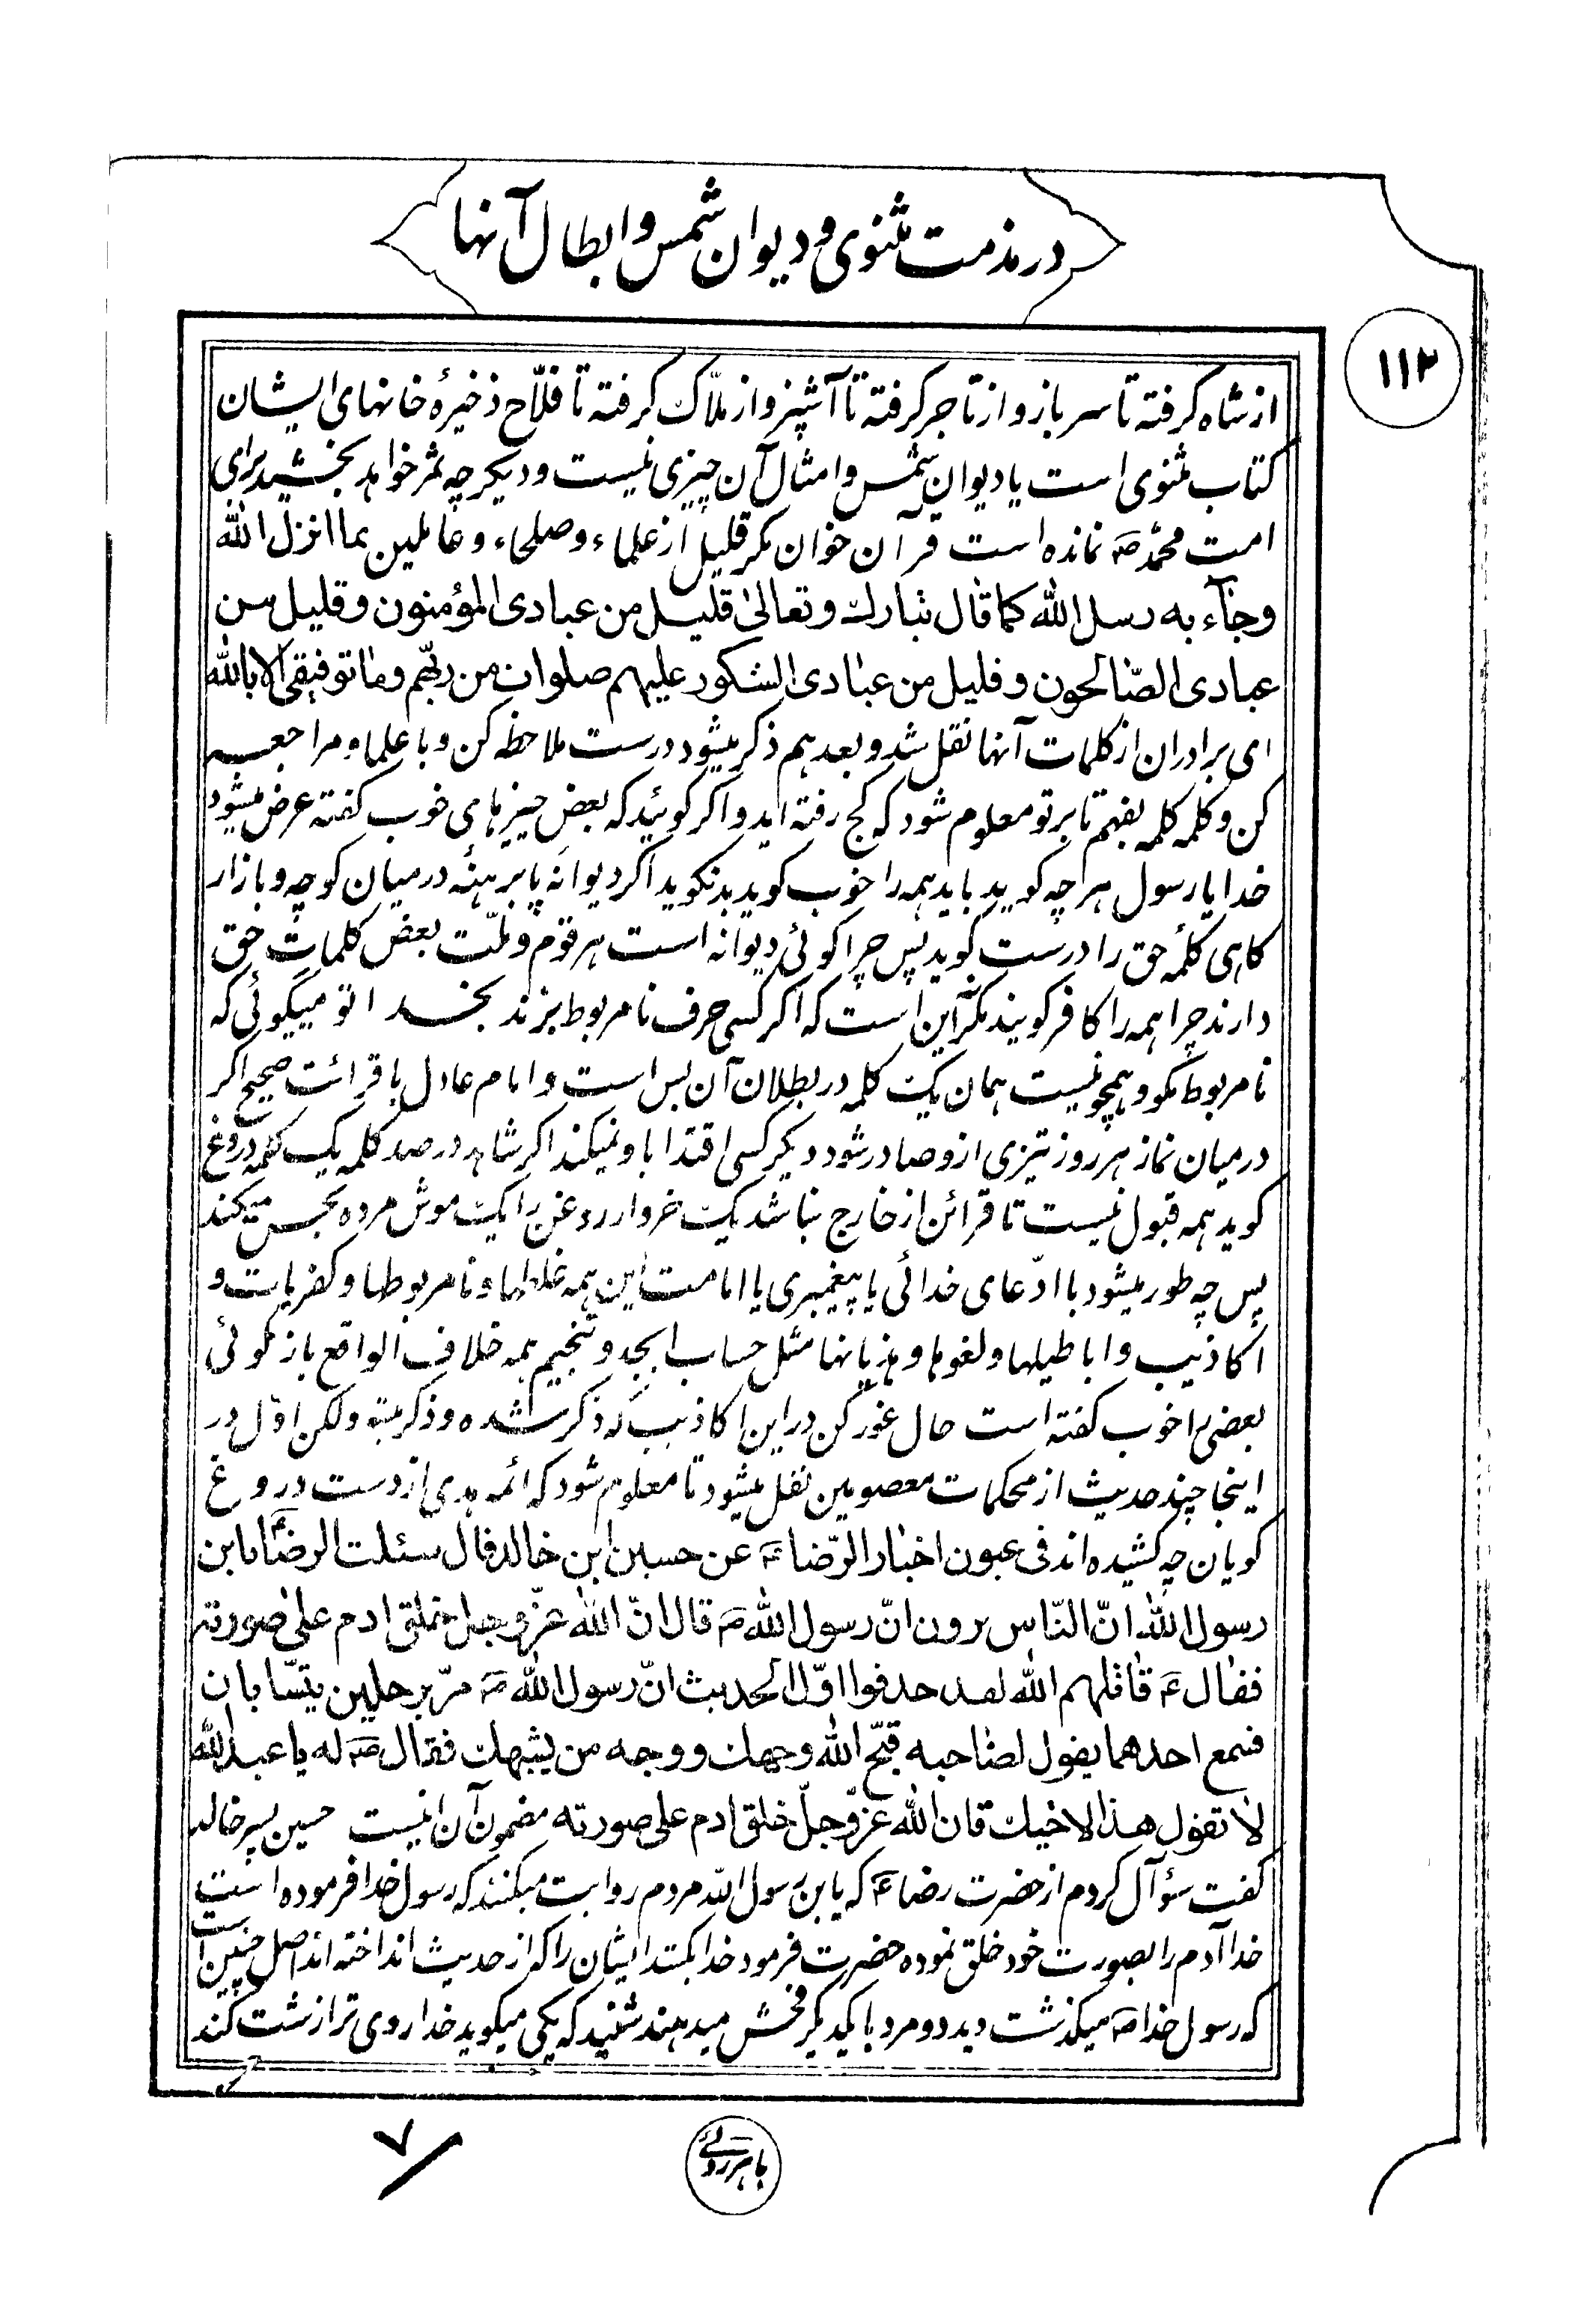 در مذمت مثنوی و دیوان شمس و ابطال آنها
۱۱۳
از شاه کرفته تا سرباز و از تاجر کرفته تا آشپز و از ملّاک کرفته تا فلّاح ذخیرهٔ خانهای ایشان
کتاب مثنوی است یا دیوان شمس و امثال آن چیزی نیست و دیکر چه ثمر خواهد بخشید برای
امت محمّد ص نمانده است قرآن خوان مکر قلیل از علماء و صلحاء و عاملین بما انزل الله
وجآء به رسل الله کما قال تبارک و تعالی قلیل من عبادی المؤمنون و قلیل من
عبادی الصّالحون و قلیل من عبادی الشکور علیهم صلوات من ربّهم و ما توفیقی الا بالله
ای برادران از کلمات آنها نقل شد و بعد هم ذکر میشود درست ملاحظه کن و با علماء مراجعه
کن و کلمه کلمه بفهم تا بر تو معلوم شود که کج رفته اید و اکر کوئید که بعض چیزهای خوب کفته عرض میشود
خدا یا رسول هر چه کوید باید همه را خوب کوید بد نکوید اکر دیوانه پا برهنهٔ در میان کوچه و بازار
کاهی کلمهٔ حق را درست کوید پس چرا کوئی دیوانه است هر قوم و ملّت بعض کلمات حق
دارند چرا همه را کافر کویند مکر این است که اکر کسی حرف نامربوط بزند بخدا تو میکوئی که
نامربوط مکو و همچو نیست همان یک کلمه در بطلان آن بس است و امام عادل با قرائت صحیح اکر
در میان نماز هر روز تیزی از و صادر شود دیکر کسی اقتدا باو نمیکند اکر شاهد در صد کلمه یک کلمه دروغ
کوید همه قبول نیست تا قرائن از خارج نباشد یک خروار روغن را یک موش مرده نجس میکند
پس چه طور میشود با ادّعای خدائی یا پیغمبری یا امامت این همه غلطها و نامربوطها و کفریات و
اکاذیب و اباطیلها و لغوها و هذیانها مثل حساب ابجد و تنجیم همه خلاف الواقع باز کوئی
بعضی را خوب کفته است حال غور کن در این اکاذیب که ذکر شده و ذکر میشود ولکن اوّل در
اینجا چند حدیث از محکمات معصومین نقل میشود تا معلوم شود که ائمه هدی از دست دروغ
کویان چه کشیده اند فی عیون اخبار الرّضاء ع عن حسین ابن خالد قال سئلت الرضا ع یا بن
رسول الله انّ النّاس یرون انّ رسول الله ص قال انّ الله عزّ و جل خلق ادم علی صورته
فقال ع قاتلهم الله لقد حذفوا اوّل الحدیث انّ رسول الله ص مرّ برجلین یتسّابان
فسمع احدهما یقول لصاحبه قبّح الله وجهک و وجه من یشبهک فقال ص له یا عبد الله
لا تقول هذا لاخیک فان الله عزّ و جلّ خلق ادم علی صورته مضمون آن اینست حسین پسر خالد
کفت سؤآل کردم از حضرت رضاء ع که یا بن رسول الله مردم روایت میکنند که رسول خدا فرموده است
خدا آدم را بصورت خود خلق نموده حضرت فرمود خدا بکشد ایشان را که از حدیث انداخته اند اصل چنین است
که رسول خدا ص میکذشت دید دو مرد با یکدیکر فحش میدهند شنید که یکی میکوید خدا روی ترا زشت کند
۷